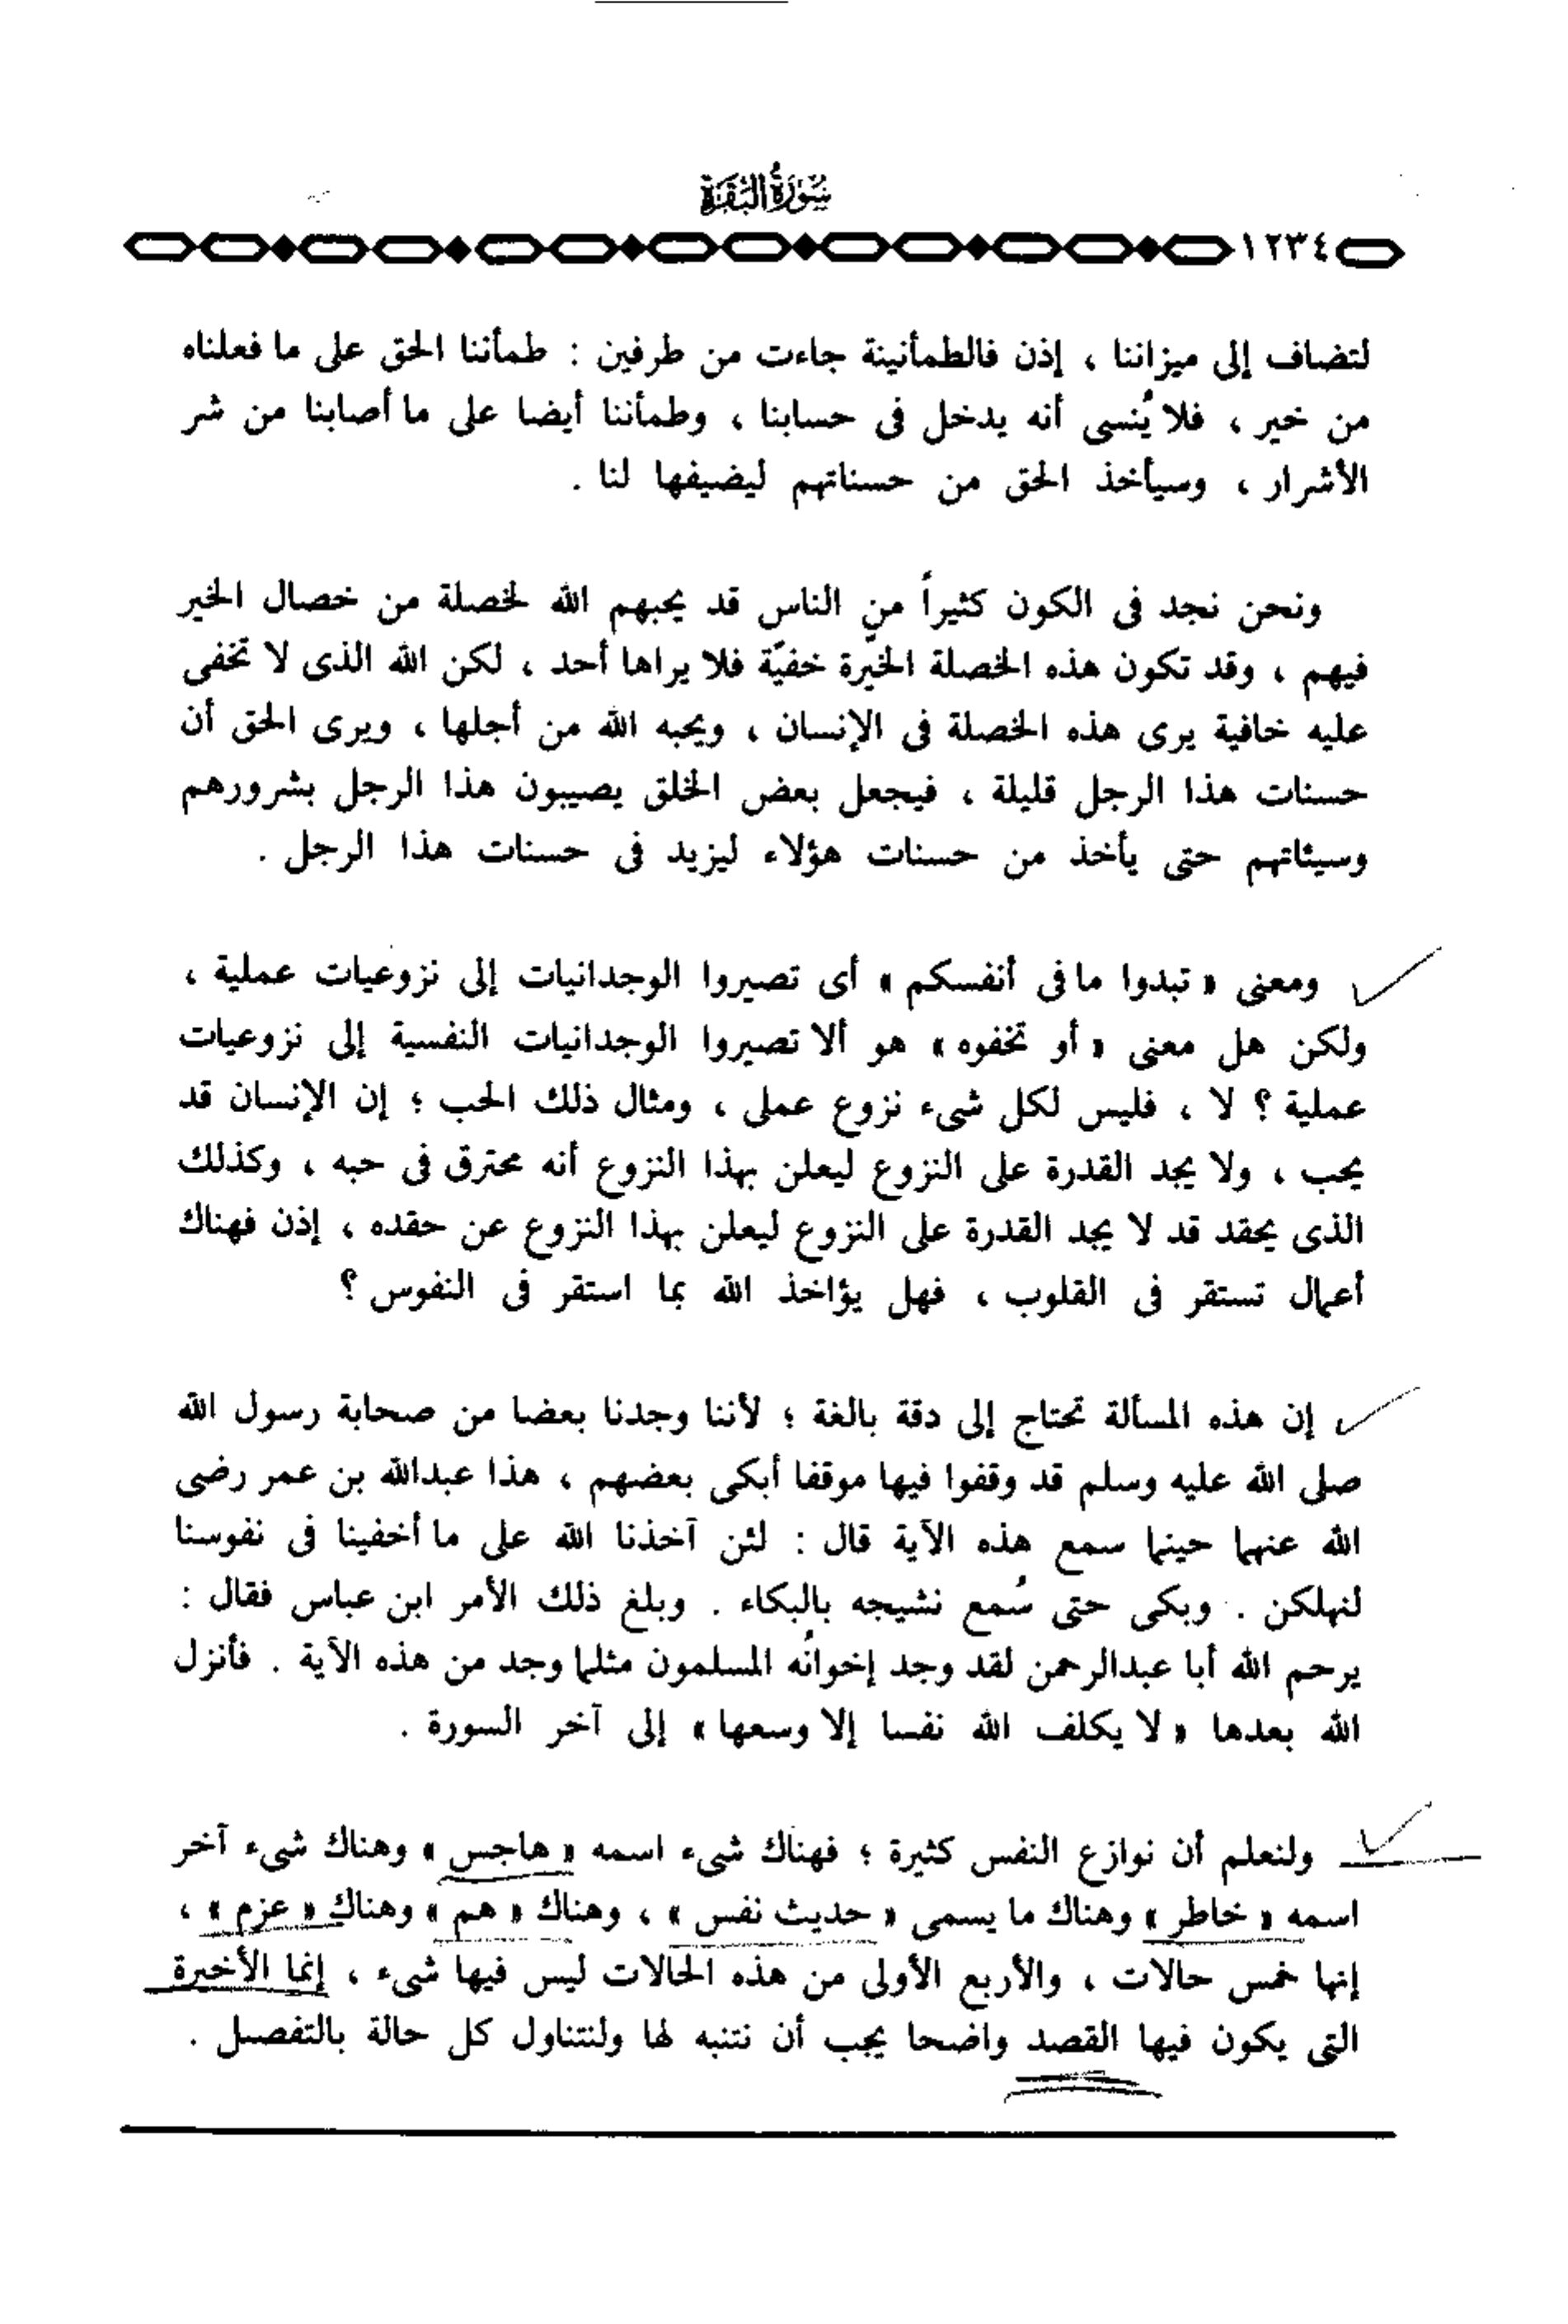 سورة البقرة
١٢٣٤
لتضاف إلى ميزاننا ، إذن فالطمأنينة جاءت من طرفين : طمأننا الحق على ما فعلناه
من خير ، فلا يُنسى أنه يدخل فى حسابنا ، وطمأننا أيضا على ما أصابنا من شر
الأشرار ، وسيأخذ الحق من حسناتهم ليضيفها لنا .
ونحن نجد فى الكون كثيراً من الناس قد يحبهم الله لخصلة من خصال الخير
فيهم ، وقد تكون هذه الخصلة الخيِّرة خفيّة فلا يراها أحد ، لكن الله الذى لا تخفى
عليه خافية يرى هذه الخصلة فى الإنسان ، ويحبه الله من أجلها ، ويرى الحق أن
حسنات هذا الرجل قليلة ، فيجعل بعض الخلق يصيبون هذا الرجل بشرورهم
وسيئاتهم حتى يأخذ من حسنات هؤلاء ليزيد فى حسنات هذا الرجل .
ومعنى « تبدوا ما فى أنفسكم » أى تصيروا الوجدانيات إلى نزوعيات عملية ،
ولكن هل معنى « أو تخفوه » هو ألا تصيروا الوجدانيات النفسية إلى نزوعيات
عملية ؟ لا ، فليس لكل شىء نزوع عملى ، ومثال ذلك الحب ؛ إن الإنسان قد
يحب ، ولا يجد القدرة على النزوع ليعلن بهذا النزوع أنه محترق فى حبه ، وكذلك
الذى يحقد قد لا يجد القدرة على النزوع ليعلن بهذا النزوع عن حقده ، إذن فهناك
أعمال تستقر فى القلوب ، فهل يؤاخذ الله بما استقر فى النفوس ؟
إن هذه المسألة تحتاج إلى دقة بالغة ؛ لأننا وجدنا بعضا من صحابة رسول الله
صلى الله عليه وسلم قد وقفوا فيها موقفا أبكى بعضهم ، هذا عبدالله بن عمر رضى
الله عنهما حينما سمع هذه الآية قال : لئن آخذنا الله على ما أخفينا فى نفوسنا
لنهلكن . وبكى حتى سُمع نشيجه بالبكاء . وبلغ ذلك الأمر ابن عباس فقال :
يرحم الله أبا عبدالرحمن لقد وجد إخوانُه المسلمون مثلما وجد من هذه الآية . فأنزل
الله بعدها « لا يكلف الله نفسا إلا وسعها » إلى آخر السورة .
ولنعلم أن نوازع النفس كثيرة ؛ فهناك شىء اسمه « هاجس » وهناك شىء آخر
اسمه « خاطر » وهناك ما يسمى « حديث نفس » ، وهناك « هم » وهناك « عزم » ،
إنها خمس حالات ، والأربع الأولى من هذه الحالات ليس فيها شىء ، إنما الأخيرة
التى يكون فيها القصد واضحا يجب أن نتنبه لها ولنتناول كل حالة بالتفصيل .